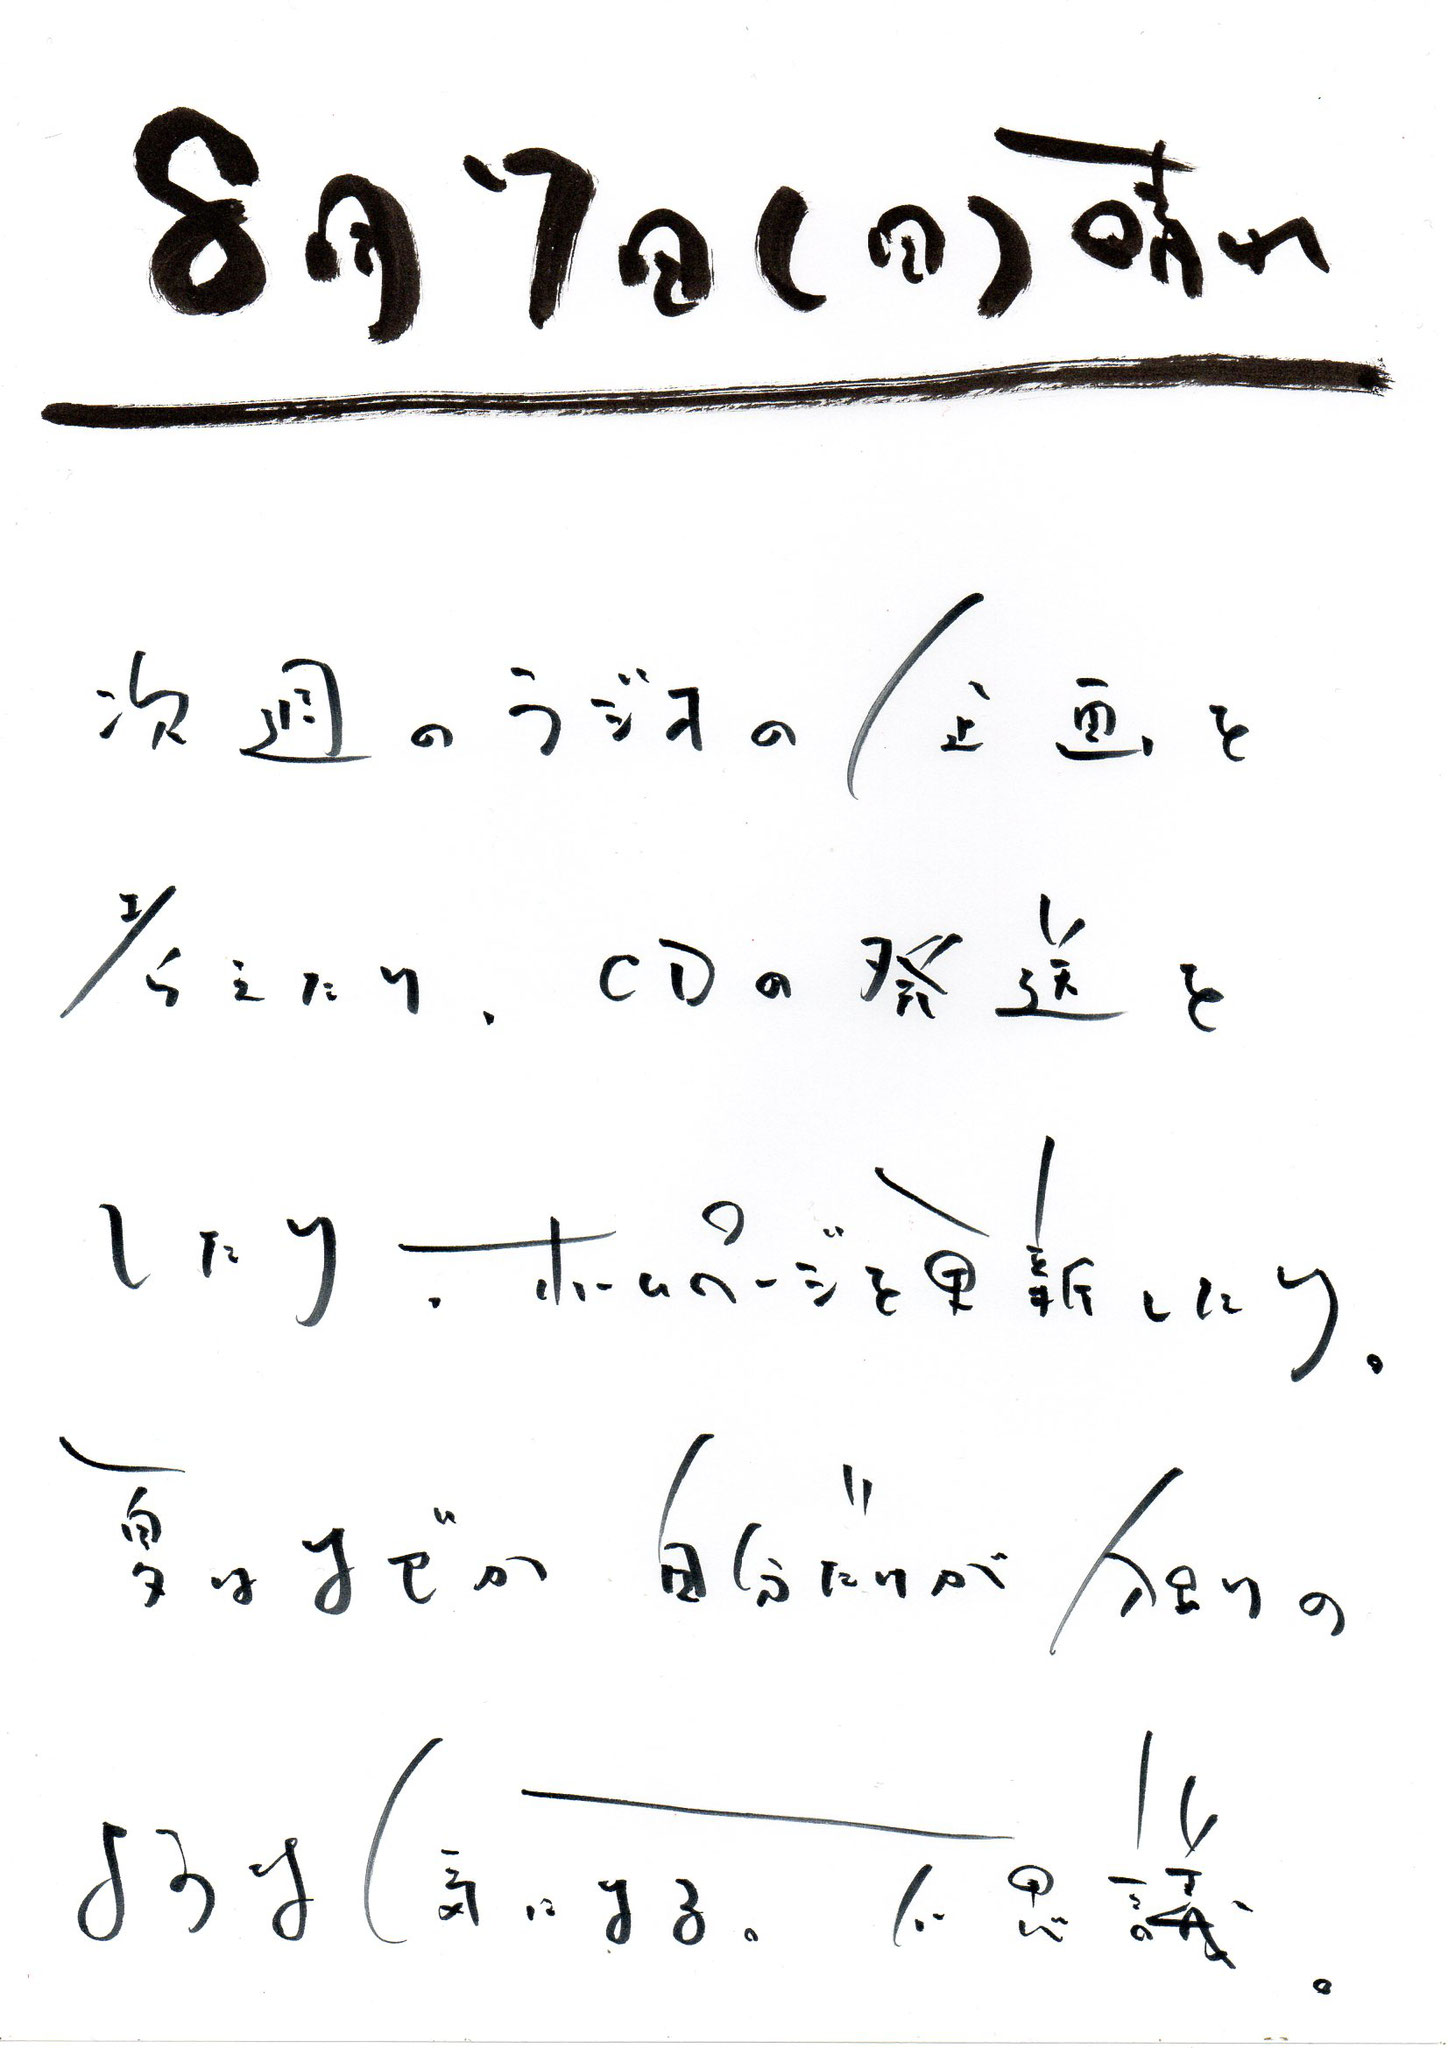 8月7日(日)晴れ
次週のラジオの企画を
考えたり、CDの発送を
したり、ホームページを更新したり。
夏はなぜか自分だけが独りの
ような気になる。不思議。